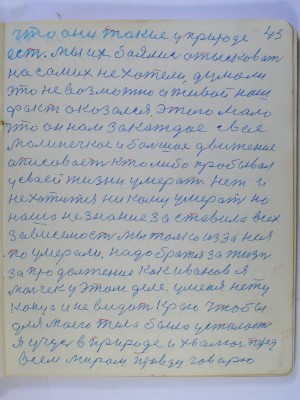 43
что они такие у природе
есть. мы их боялись отысковат
на самих не хотели, думали
это не возможно а живой наш
факт оказался. Этого мало
что он нам за каждое свое
малинечкое и большое движение
описовает кто либо пробывал
у своей жизни умерат. Нет и
не хотится никому умерат но
наше незнание заставила всех
зависемость мы только из за нея
поумерали. Надо братся за жизн
за продолжение как иванов я
молчек у этом деле умения нету
конца и не видат краю чтобы
для моего тела было усталост
Я учусь в природе и хвалюс пред
всем миром правду говарю